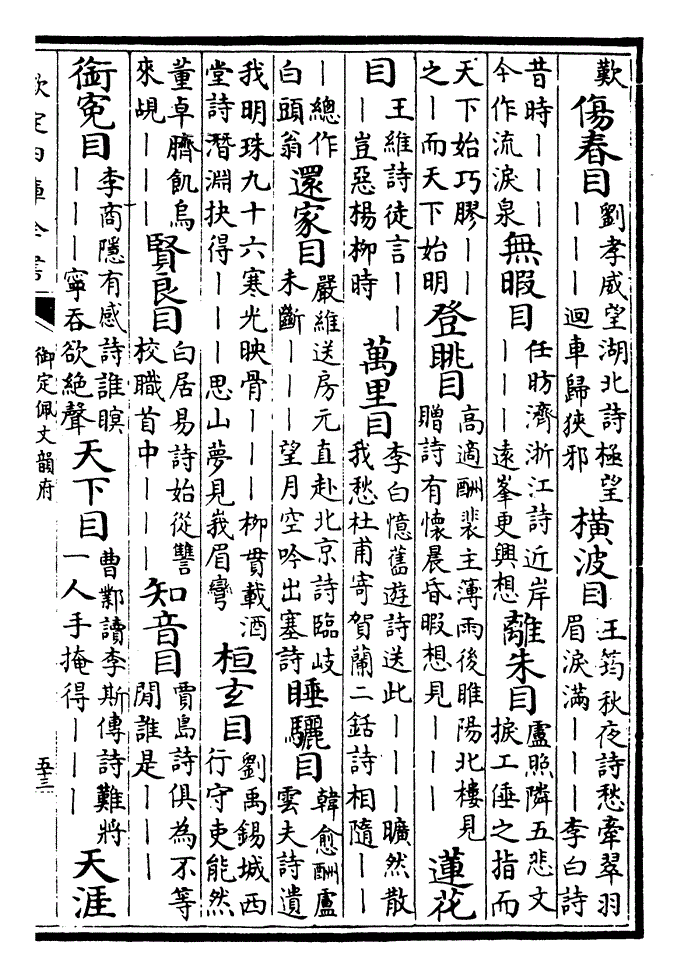 歎傷春目劉孝威望湖北詩極望｜｜｜迴車歸狹邪橫波目王筠秋夜詩愁牽翠羽眉淚滿｜｜｜李白詩
昔時｜｜｜今作流淚泉無暇目任昉濟浙江詩近岸｜｜｜遠峯更興想離朱目盧照隣五悲文捩工倕之指而
天下始巧膠｜｜之｜而天下始明登眺目高適酬裴主薄雨後睢陽北樓見贈詩有懷晨昏暇想見｜｜｜蓮花
目王維詩徒言｜｜｜豈惡楊柳時萬里目李白憶舊遊詩送此｜｜｜曠然散我愁杜甫寄賀蘭二銛詩相隨｜｜
｜總作白頭翁還家目嚴維送房元直赴北京詩臨岐未斷｜｜｜望月空吟出塞詩睡驪目韓愈酬盧雲夫詩遺
我明珠九十六寒光映骨｜｜｜柳貫載酒堂詩潛淵抉得｜｜｜思山夢見峩眉彎桓玄目劉禹錫城西行守吏能然
董卓臍飢烏來覘｜｜｜賢良目白居易詩始從讐校職首中｜｜｜知音目賈島詩俱為不等閒誰是｜｜｜
銜冤目李商隱有感詩誰瞑｜｜｜寧吞欲絶聲天下目曹鄴讀李斯傳詩難將一人手掩得｜｜｜天涯
欽定四庫全書
御定佩文韻府
五三